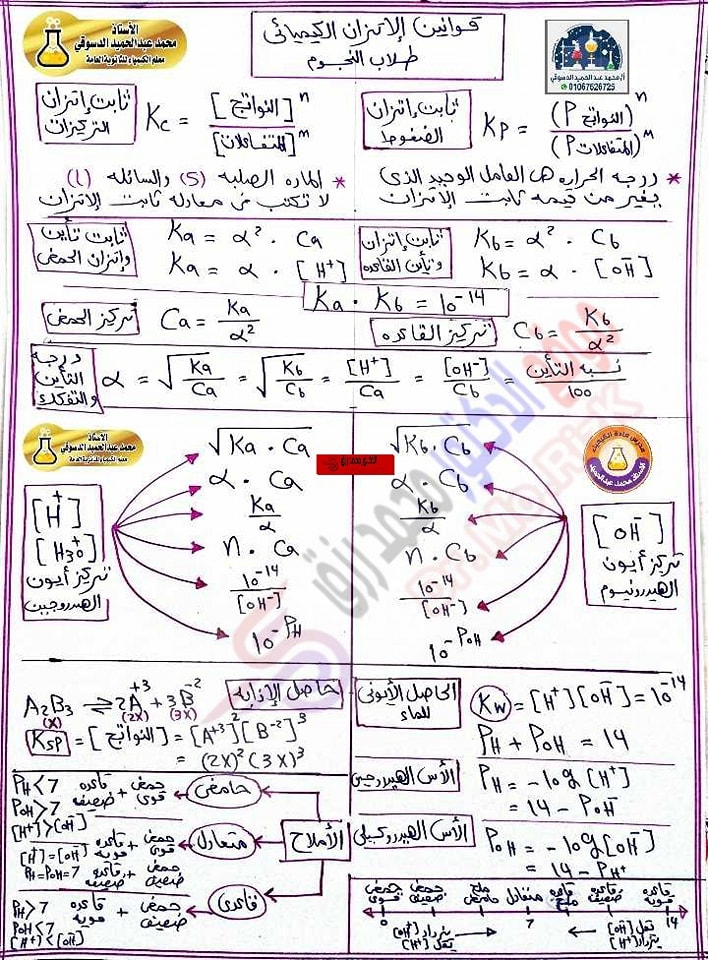 الأستاذ
محمد عبد الحميد الدسوقي
معلم الكيمياء للثانوية العامة
قوانين الإتزان الكيميائي
طلاب النجوم
أ/ محمد عبد الحميد الدسوقي
01067626725
ثابت إتزان التركيزات
Kc = [النواتج]ⁿ / [المتفاعلات]ᵐ
ثابت إتزان الضغوط
Kp = (P النواتج)ⁿ / (P المتفاعلات)ᵐ
* درجه الحراره هى العامل الوحيد الذى يغير من قيمه ثابت الإتزان
* الماده الصلبه (S) والسائله (l) لا تكتب فى معادله ثابت الإتزان
ثابت تأين وإتزان الحمض
Ka = α² . Ca
Ka = α . [H⁺]
ثابت إتزان وتأين القاعده
Kb = α² . Cb
Kb = α . [OH⁻]
Ka . Kb = 10⁻¹⁴
تركيز الحمض
Ca = Ka / α²
تركيز القاعده
Cb = Kb / α²
درجه التأين والتفكك
α = √(Ka/Ca) = √(Kb/Cb) = [H⁺]/Ca = [OH⁻]/Cb = نسبه التأين / 100
الأستاذ
محمد عبد الحميد الدسوقي
معلم الكيمياء للثانوية العامة
[H⁺]
[H₃O⁺]
تركيز أيون الهيدروجين
√Ka . Ca
α . Ca
Ka / α
n . Ca
10⁻¹⁴ / [OH⁻]
10⁻ᴾᴴ
√Kb . Cb
α . Cb
Kb / α
n . Cb
10⁻¹⁴ / [OH⁻]
10⁻ᴾᴼᴴ
[OH⁻]
تركيز أيون الهيدرونيوم
موقع الدكتور محمد رزق
Dr.Mo.Rzk
حاصل الإذابه
A₂B₃ ⇌ 2A⁺³ + 3B⁻²
(X) (2X) (3X)
Ksp = [النواتج] = [A⁺³]² [B⁻²]³
= (2X)² (3X)³
الحاصل الأيونى للماء
Kw = [H⁺][OH⁻] = 10⁻¹⁴
PH + POH = 14
الأس الهيدروجينى
PH = -log[H⁺]
= 14 - POH
الأس الهيدروكسيلى
POH = -log[OH⁻]
= 14 - PH⁺
الأملاح
حامضى
حمض قوى + قاعده ضعيفه
PH < 7
POH > 7
[H⁺] > [OH⁻]
متعادل
حمض قوى + قاعده قويه
حمض ضعيف + قاعده ضعيفه
[H⁺] = [OH⁻]
PH = POH = 7
قاعدى
حمض ضعيف + قاعده قويه
PH > 7
POH < 7
[H⁺] < [OH⁻]
حمض قوى حمض ضعيف ملح حامضى متعادل ملح قاعدى قاعده ضعيفه قاعده قويه
0 7 14
يزداد [OH⁻]
يقل [H⁺]
يقل [OH⁻]
يزداد [H⁺]